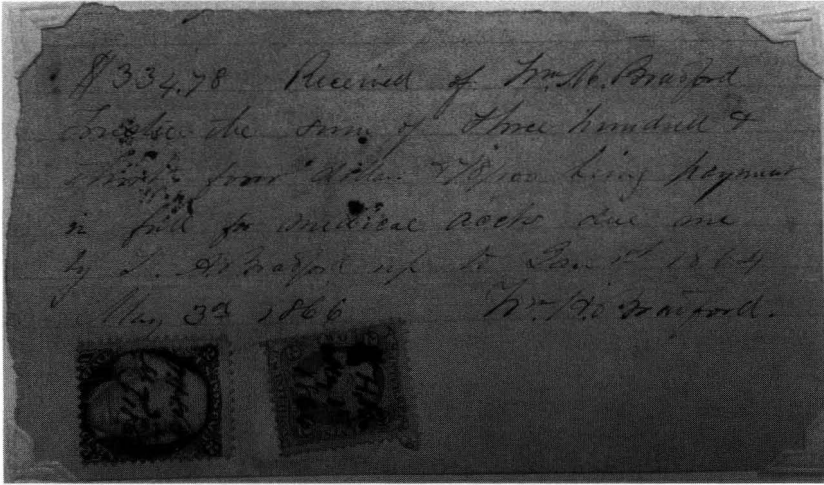 $334.78 Received of Wm. M. Bradford
Trustee the sum of Three hundred &
thirty four dollars & 78/100 being payment
in full for medical accts due me
by T. A. Bradford up to Jan 1st 1864
May 3d 1866 Wm. H. Bradford.